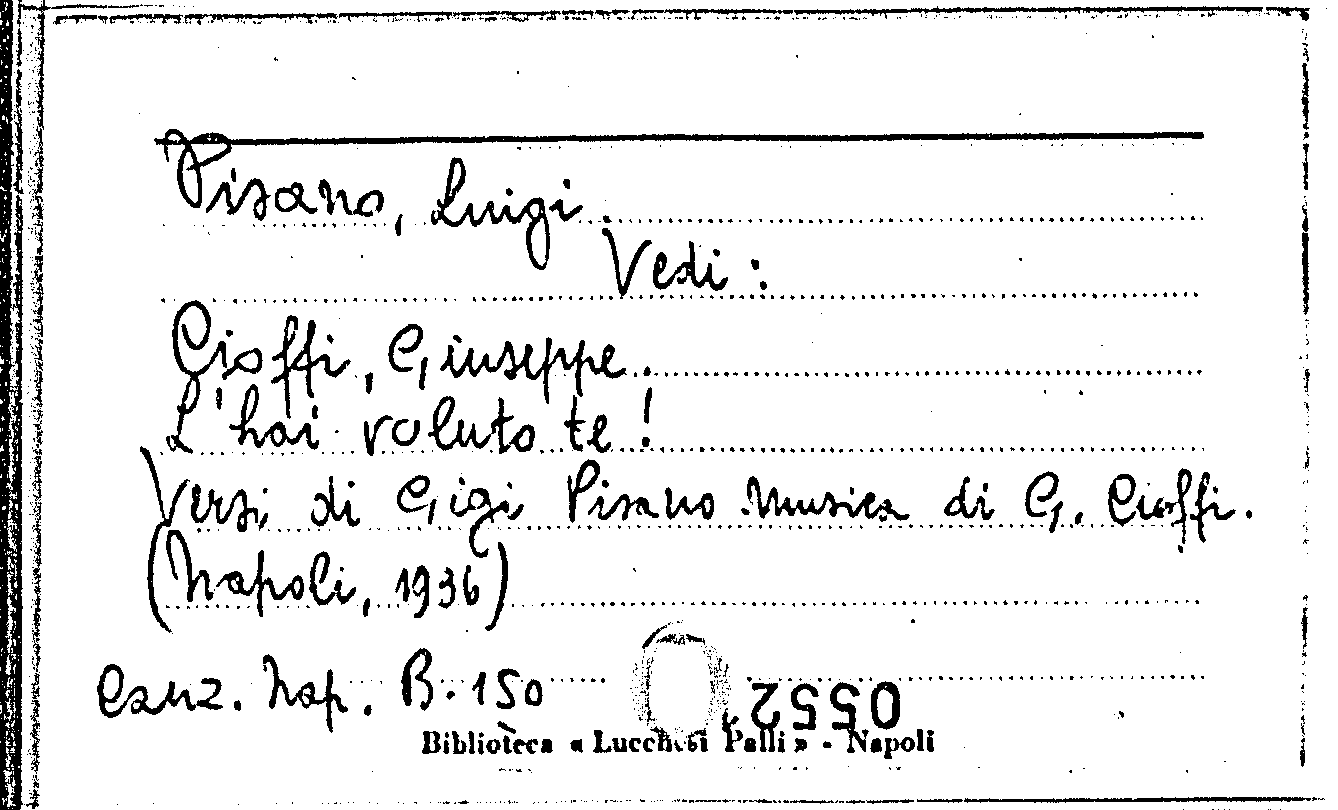 Pisano, Luigi.
Vedi :
Cioffi, Giuseppe.
L'hai voluto te !
Versi di Gigi Pisano Musica di G. Cioffi.
(Napoli, 1936)
Canz. Nap. B. 150
0552
Biblioteca « Lucchesi Palli » - Napoli